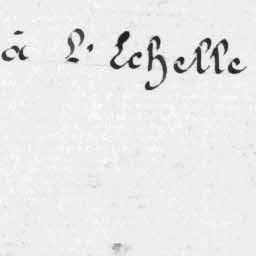 à L'Echelle